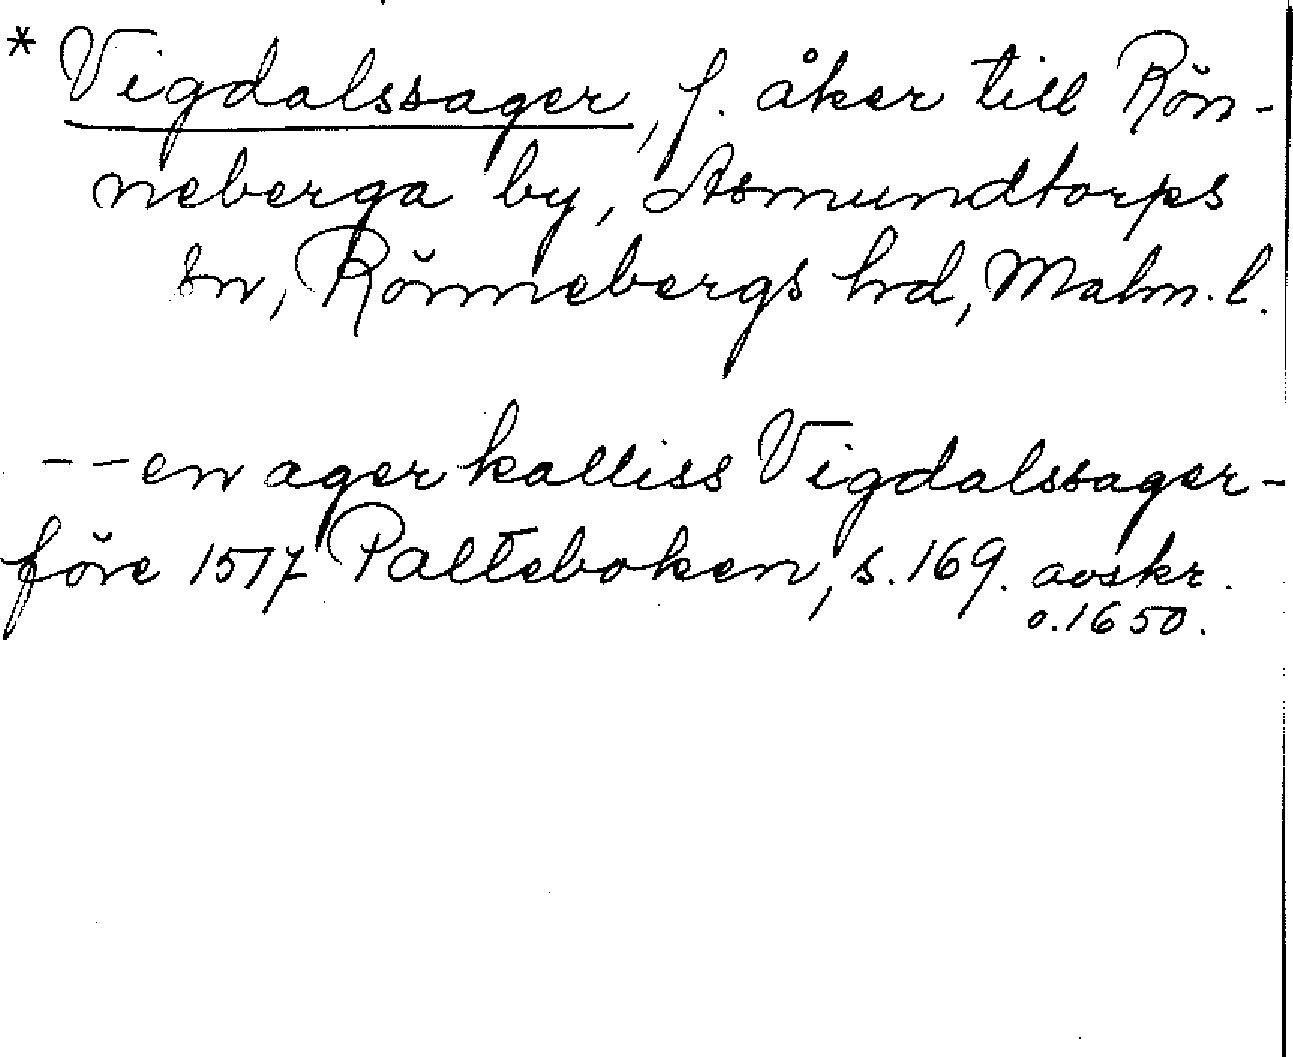 * Vigdalssager, f. åker till Rön-
neberga by, Asmundtorps
sn, Rönnebergs hd, Malm. l.
-- en ager kalliss Vigdalssager -
före 1517 Palteboken, s. 169. avskr.
o. 1650.